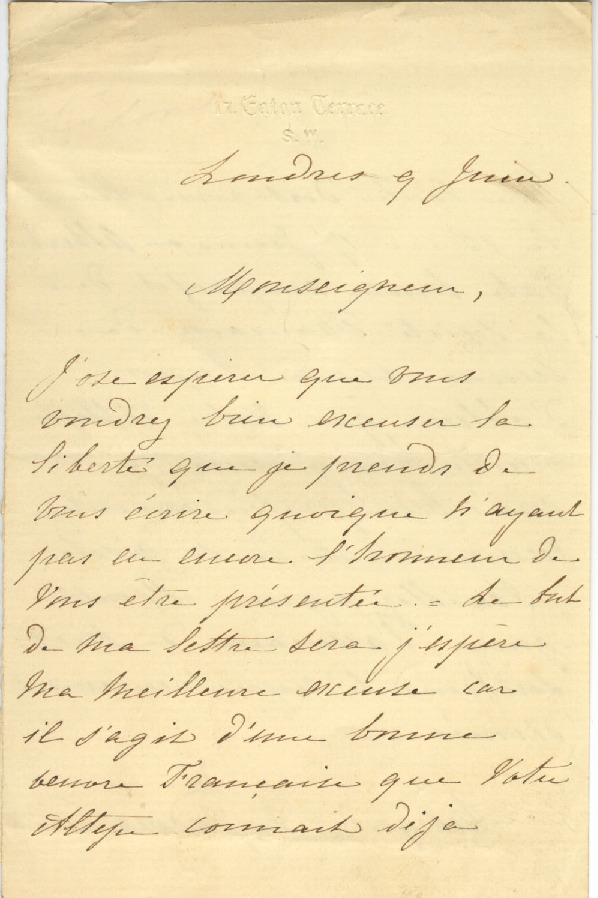 Eaton Terrace
S.W.
Londres 9 Juin.
Monseigneur,
J'ose espérer que vous
voudrez bien excuser la
liberté que je prends de
vous écrire quoique n'ayant
pas eu encore l'honneur de
Vous être présentée. = Le but
de ma lettre sera j'espère
ma meilleure excuse car
il s'agit d'une bonne
oeuvre Française que Votre
Altesse connait déja